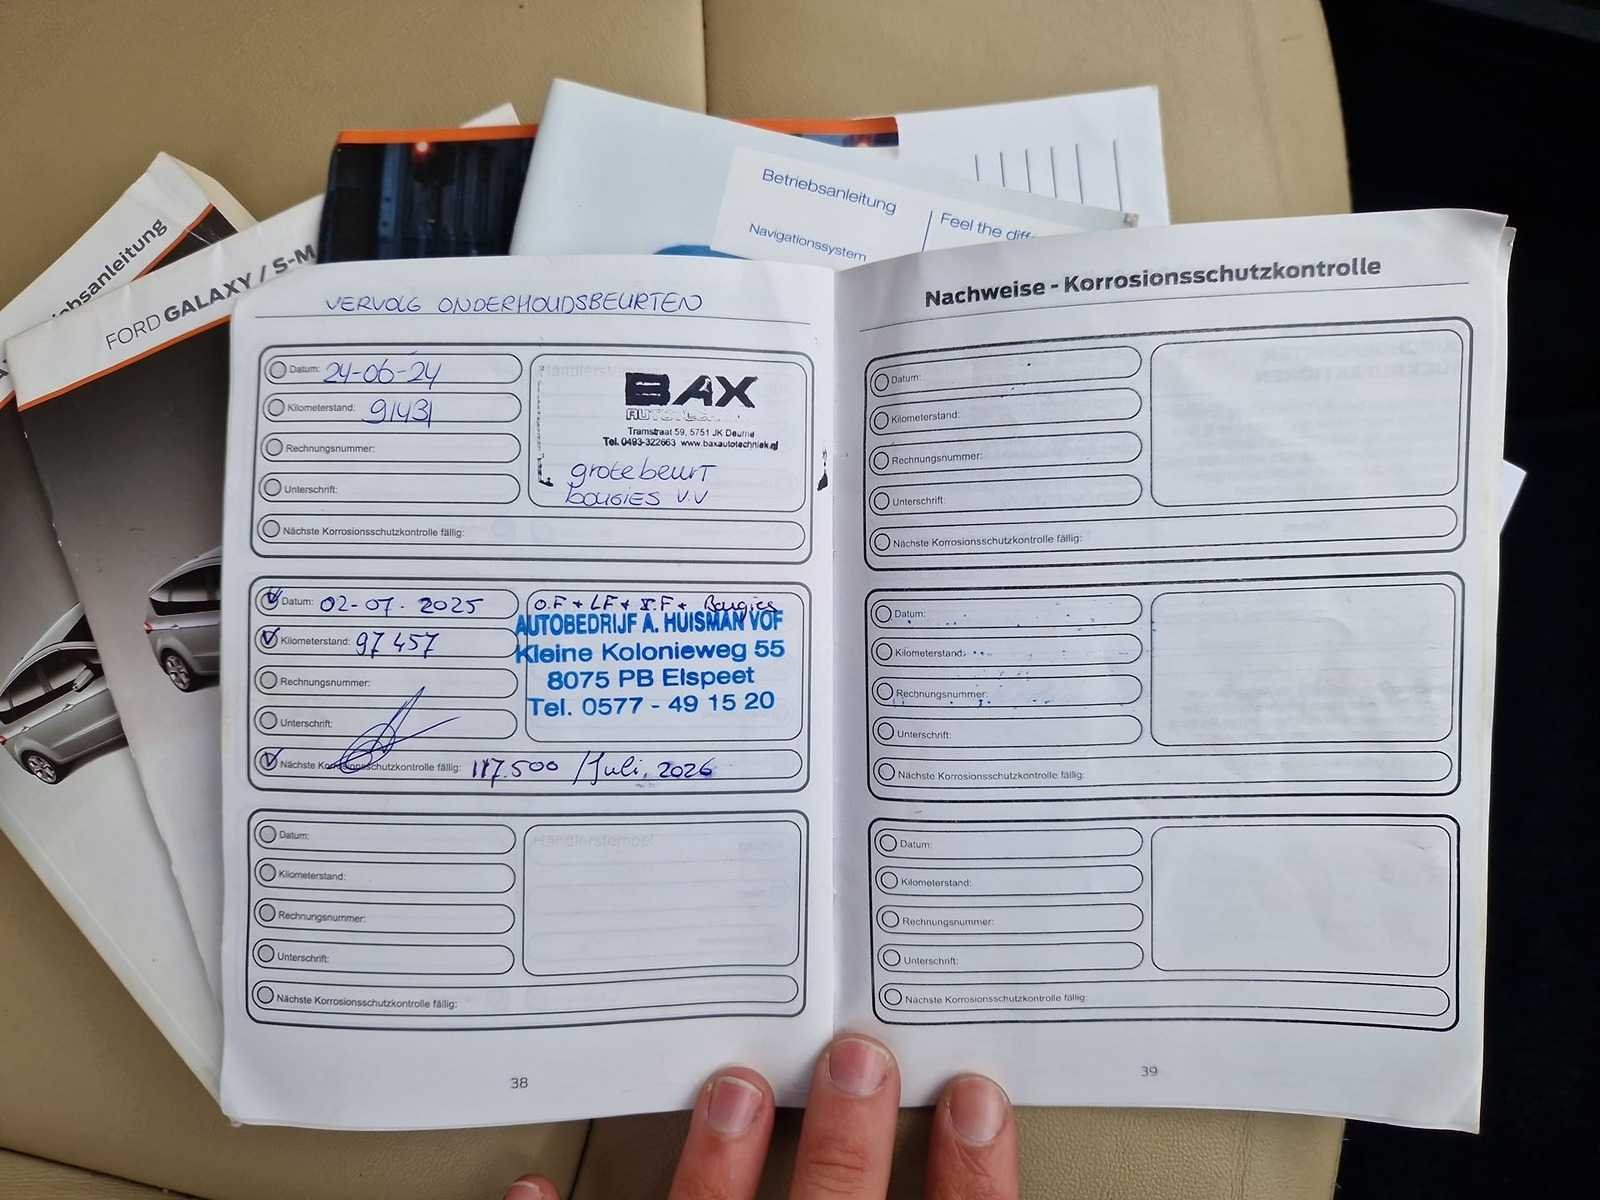 Betriebsanleitung
Navigationssystem
Feel the diff
ebsanleitung
FORD GALAXY / S-M
VERVOLG ONDERHOUDSBEURTEN
Datum: 24-06-24
Kilometerstand: 91431
Rechnungsnummer:
Unterschrift:
Nächste Korrosionsschutzkontrolle fällig:
Händlerstempel
BAX
Tramstraat 59, 5751 JK Deurne
Tel. 0493-322663 www.baxautotechniek.nl
grote beurt
bougies v.v
Datum: 02-07-2025
Kilometerstand: 97457
Rechnungsnummer:
Unterschrift:
Nächste Korrosionsschutzkontrolle fällig: 117.500 /Juli, 2026
O.F + LF + I.F + Bougies
AUTOBEDRIJF A. HUISMAN VOF
Kleine Kolonieweg 55
8075 PB Elspeet
Tel. 0577 - 49 15 20
Datum:
Kilometerstand:
Rechnungsnummer:
Unterschrift:
Nächste Korrosionsschutzkontrolle fällig:
Händlerstempel
38
Nachweise - Korrosionsschutzkontrolle
Datum:
Kilometerstand:
Rechnungsnummer:
Unterschrift:
Nächste Korrosionsschutzkontrolle fällig:
Datum:
Kilometerstand:
Rechnungsnummer:
Unterschrift:
Nächste Korrosionsschutzkontrolle fällig:
Datum:
Kilometerstand:
Rechnungsnummer:
Unterschrift:
Nächste Korrosionsschutzkontrolle fällig:
39